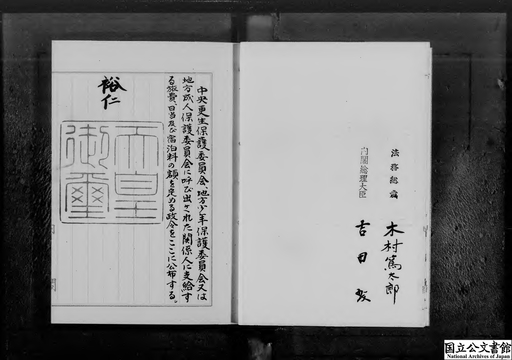 中央更生保護委員会、地方少年保護委員会又は
地方成人保護委員会に呼び出された関係人に支給す
る旅費、日当及び宿泊料の額を定める政令をここに公布する。
裕仁
天皇
御璽
法務総裁
木村篤太郎
内閣総理大臣
吉田茂
国立公文書館
National Archives of Japan